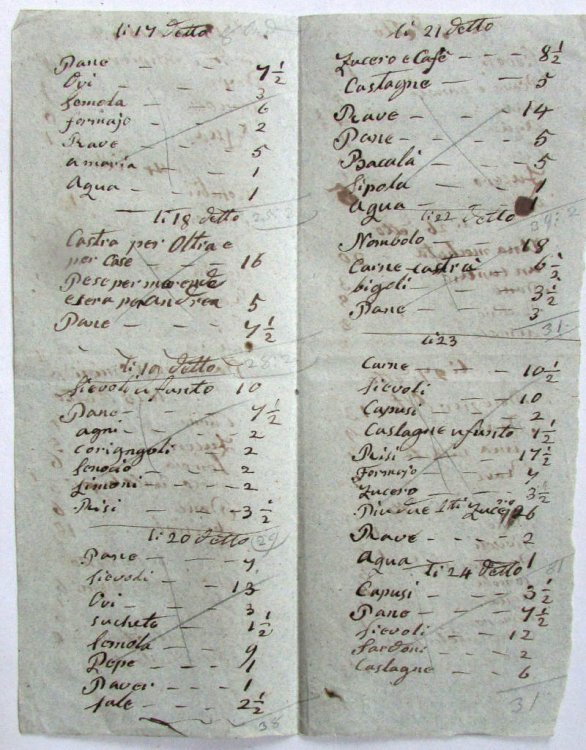 li 17 detto
Pane - - - 7 1/2
Ovi - - - 3
Semola - - 6
formajo - - 2
Rave - - - 5
amaria - - 1
Aqua - - - 1
li 18 detto 25:2
Castra per Oltra e
per Case - - - 16
Pese per merende
e sera per Andrea 5
Pane - - - 7 1/2
li 19 detto 28:2
Sievoli a funto 10
Pane - - - 7 1/2
agni - - - 2
corigngoli - 2
fenocio - - 2
Limoni - - - 2
Risi - - - 3 1/2
li 20 detto 29
Pane - - - 7
Sievoli - - - 13
Ovi - - - 3
sucheto - - 1 1/2
Semola - - - 9
Pepe - - - 1
Raver - - - 1
sale - - - 2 1/2
38
li 21 detto
Zucero e Cafè - - 8 1/2
Castagne - - - 5
Rave - - - 14
Pane - - - 5
Bacalà - - - 5
Sipola - - - 1
Aqua - - - 1
li 22 detto 39:2
Nombolo - - - 18
Carne castra 6 1/2
bigoli - - 3 1/2
Pane - - - 3
31
li 23
Carne - - - 10 1/2
Sievoli - - 10
Capusi - - 2
Castagne a funto 7 1/2
Risi - - - 17 1/2
formajo - - 7
Zucero - - - 3 1/2
Più due Zucero 26
Rave - - - 2
Aqua - - - 1
li 24 detto
Capusi - - - 3 1/2
Pane - - - 7 1/2
Sievoli - - 12
Sardoni - - 2
Castagne - - 6
31